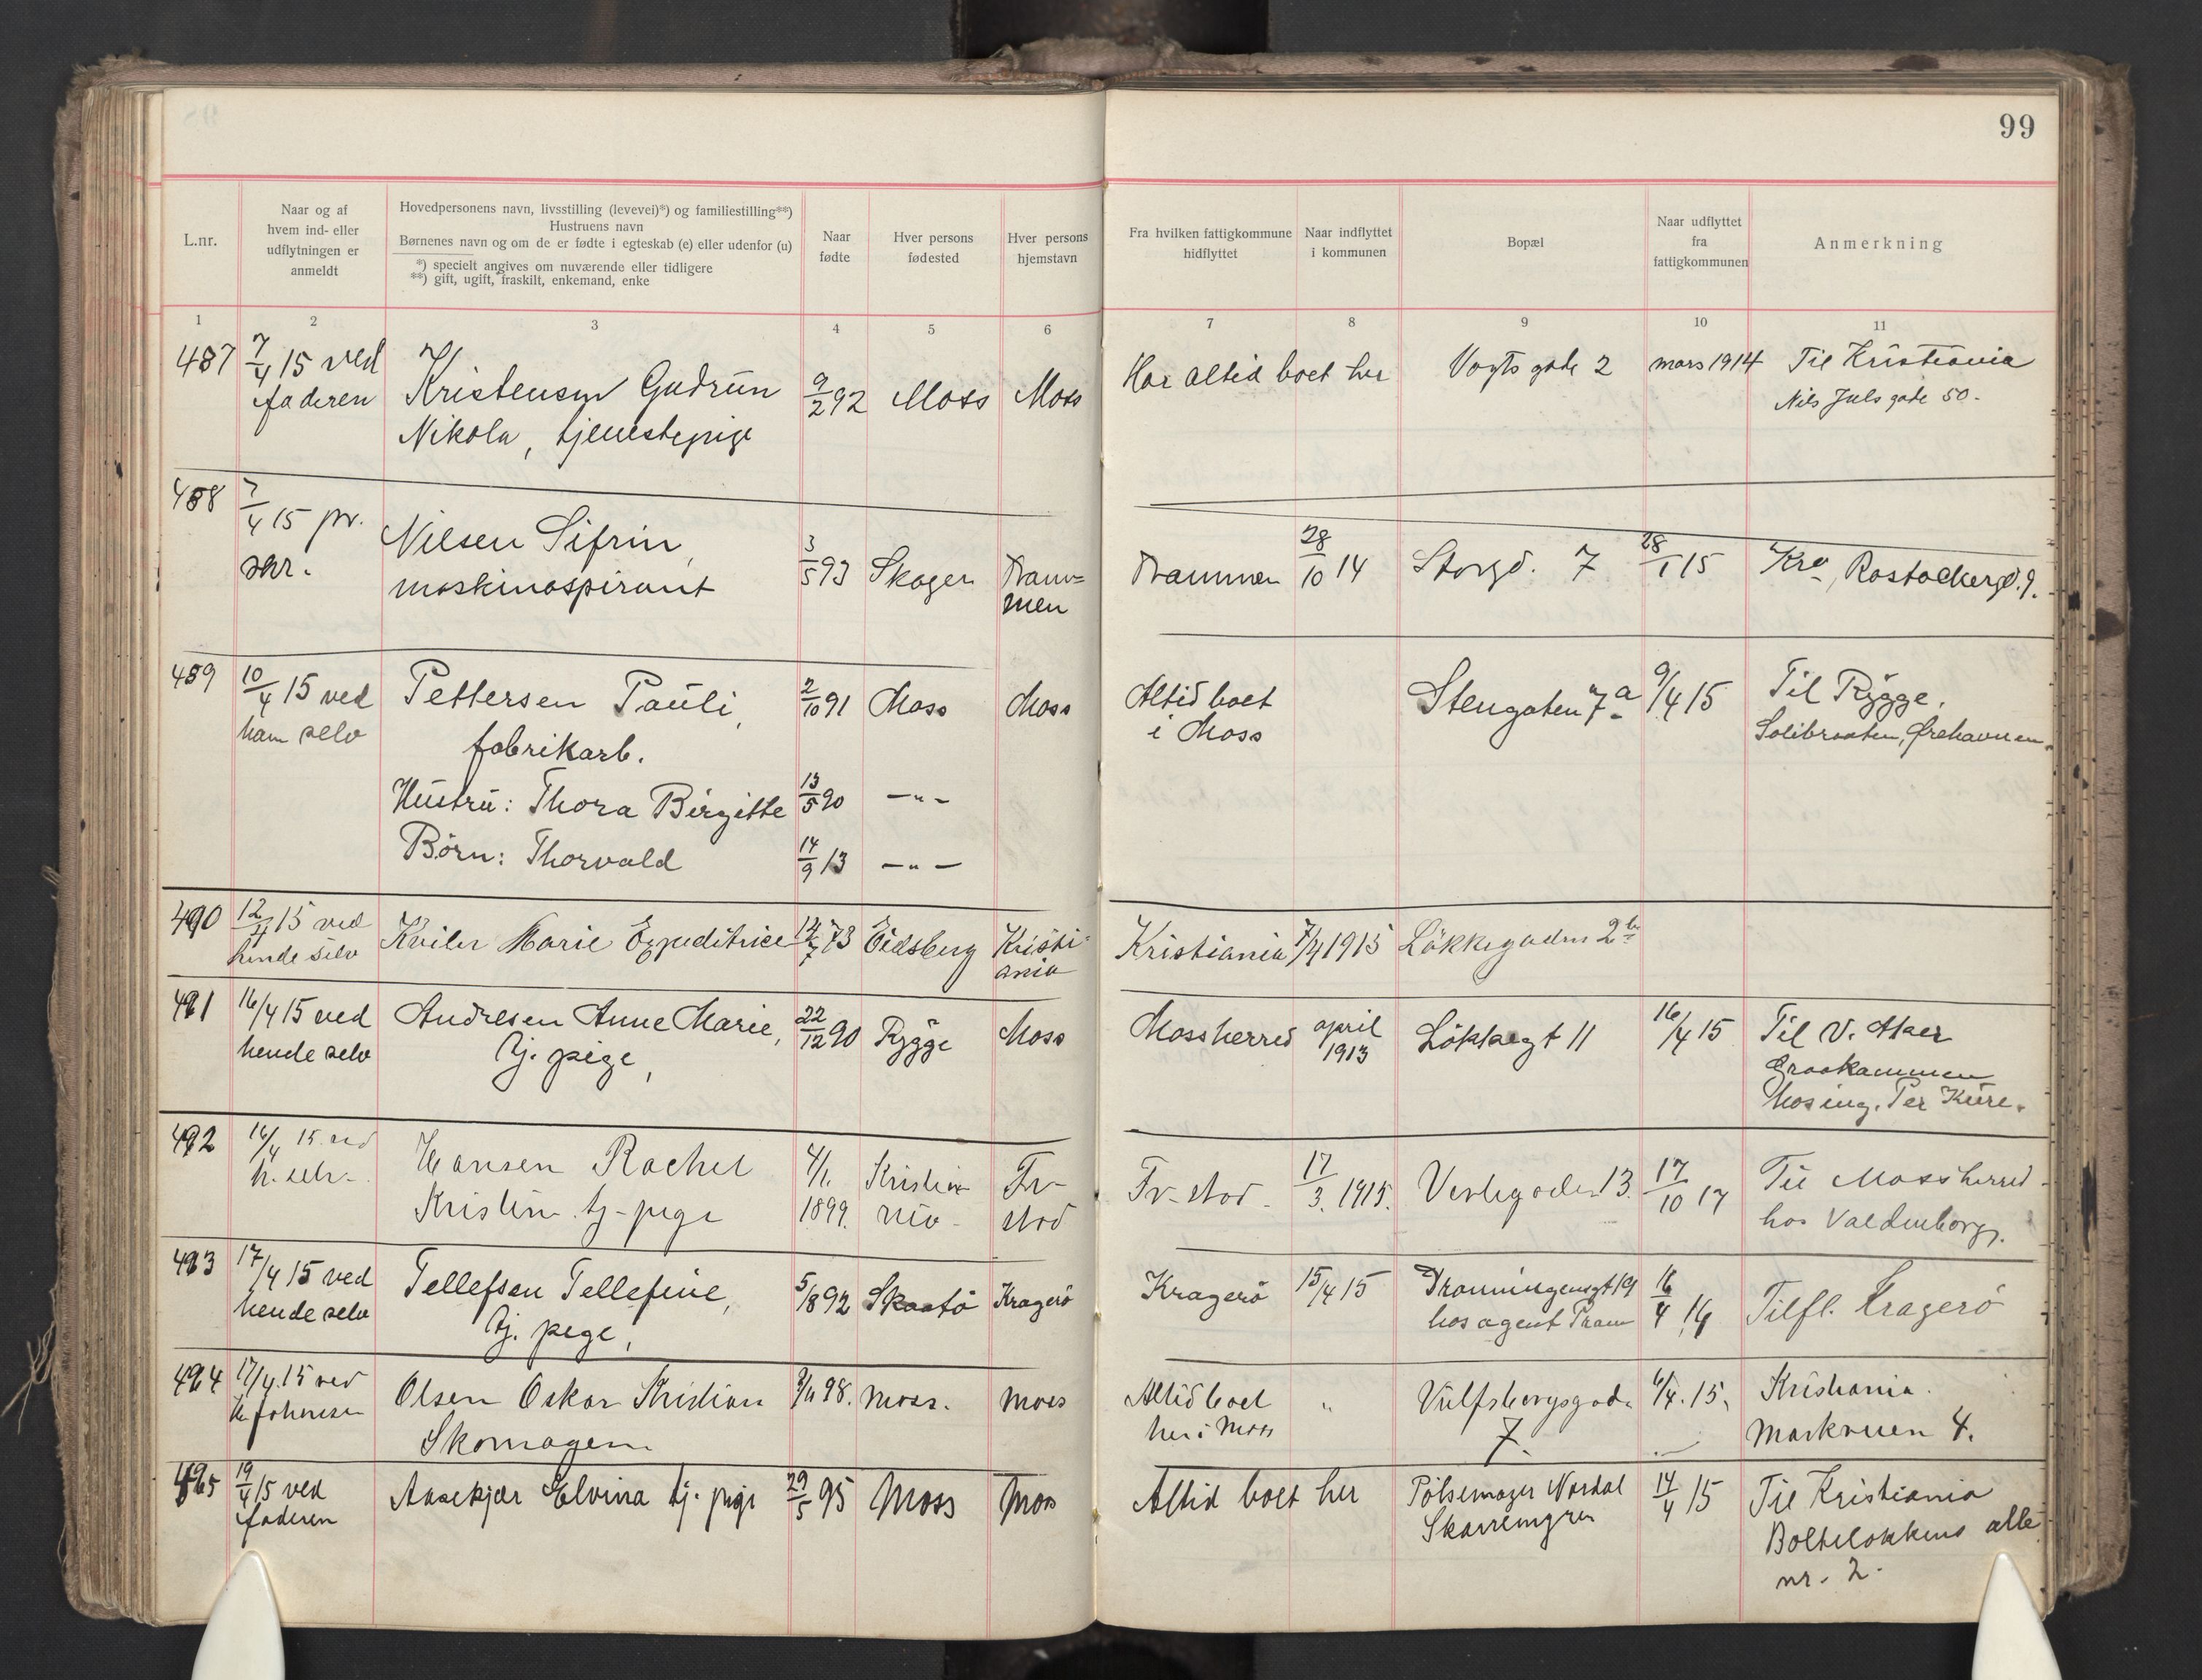 99
L.nr.
Naar og af
hvem ind- eller
udflytningen er
anmeldt
Hovedpersonens navn, livsstilling (levevei)*) og familiestilling**)
Hustruens navn
Børnenes navn og om de er fødte i egteskab (e) eller udenfor (u)
*) specielt angives om nuværende eller tidligere
**) gift, ugift, fraskilt, enkemand, enke
Naar
fødte
Hver persons
fødested
Hver persons
hjemstavn
Fra hvilken fattigkommune
hidflyttet
Naar indflyttet
i kommunen
Bopæl
Naar udflyttet
fra
fattigkommunen
Anmerkning
1 2 3 4 5 6 7 8 9 10 11
487 7/4 15 ved
faderen
Kristensen Gudrun
Nikola, tjenestepige
9/2 92 Moss Moss
Har altid boet her
Vogts gade 2
mars 1914
Til Kristiania
Nils Juls gade 50.
488 7/4 15 pr.
skr.
Nilsen Sifrin,
maskinaspirant
3/5 93 Skoger
Dram=
men
Drammen 28/10 14 Storgd. 7 28/1 15 Kra, Rostockergd. 9.
489 10/4 15 ved
ham selv
Pettersen Pauli,
fabrikarb.
2/10 91 Moss Moss
Hustru: Thora Birgitte 13/5 90 -"-
Børn: Thorvald 14/9 13 -"-
Altid boet
i Moss
Stengaten 7a 9/4 15
Til Rygge,
Solibraaten, Ørehavnen.
490 12/4 15 ved
hende selv
Kviler Marie Expeditrice 12/7 73 Eidsberg Kristi-
ania
Kristiania 7/4 1915 Løkkegaden 2b
491 16/4 15 ved
hende selv
Andresen Anne Marie,
tj. pige,
22/12 90 Rygge Moss
Mossherred april
1913
Løkkegt 11 16/4 15
Til V. Aker
Graakammen
hos ing. Per Kure.
492 16/4 15 ved
h. selv.
Hansen Rachel
Kristine tj-pige
4/1.
1899.
Kristia-
nia-
Fr-
stad
Fr-stad- 17/3. 1915. Verlegaden 13. 17/10 17
Til Mossherred
hos Valdenborg.
493 17/4 15 ved
hende selv
Tellefsen Tellefine,
tj. pige,
5/8 92 Skaatø Kragerø
Kragerø 15/4 15
Dronningensgt 19
hos agent
16/4 16 Tilfl. Kragerø
494 17/4. 15 ved
Johnsen
Olsen Oskar Kristian
Skomagers.
9/11 98. Moss. Moss
Altid boet
her i Moss
"
Vulfsbergsgade
7.
6/4. 15.
Kristiania.
Markveien 4.
495 19/4 15 ved
faderen
Aasekjær Elvina tj. pige 29/5 95 Moss Moss
Altid boet her
Pølsemager Nordal
14/4 15
Til Kristiania
Bolteløkkens alle
nr. 2.